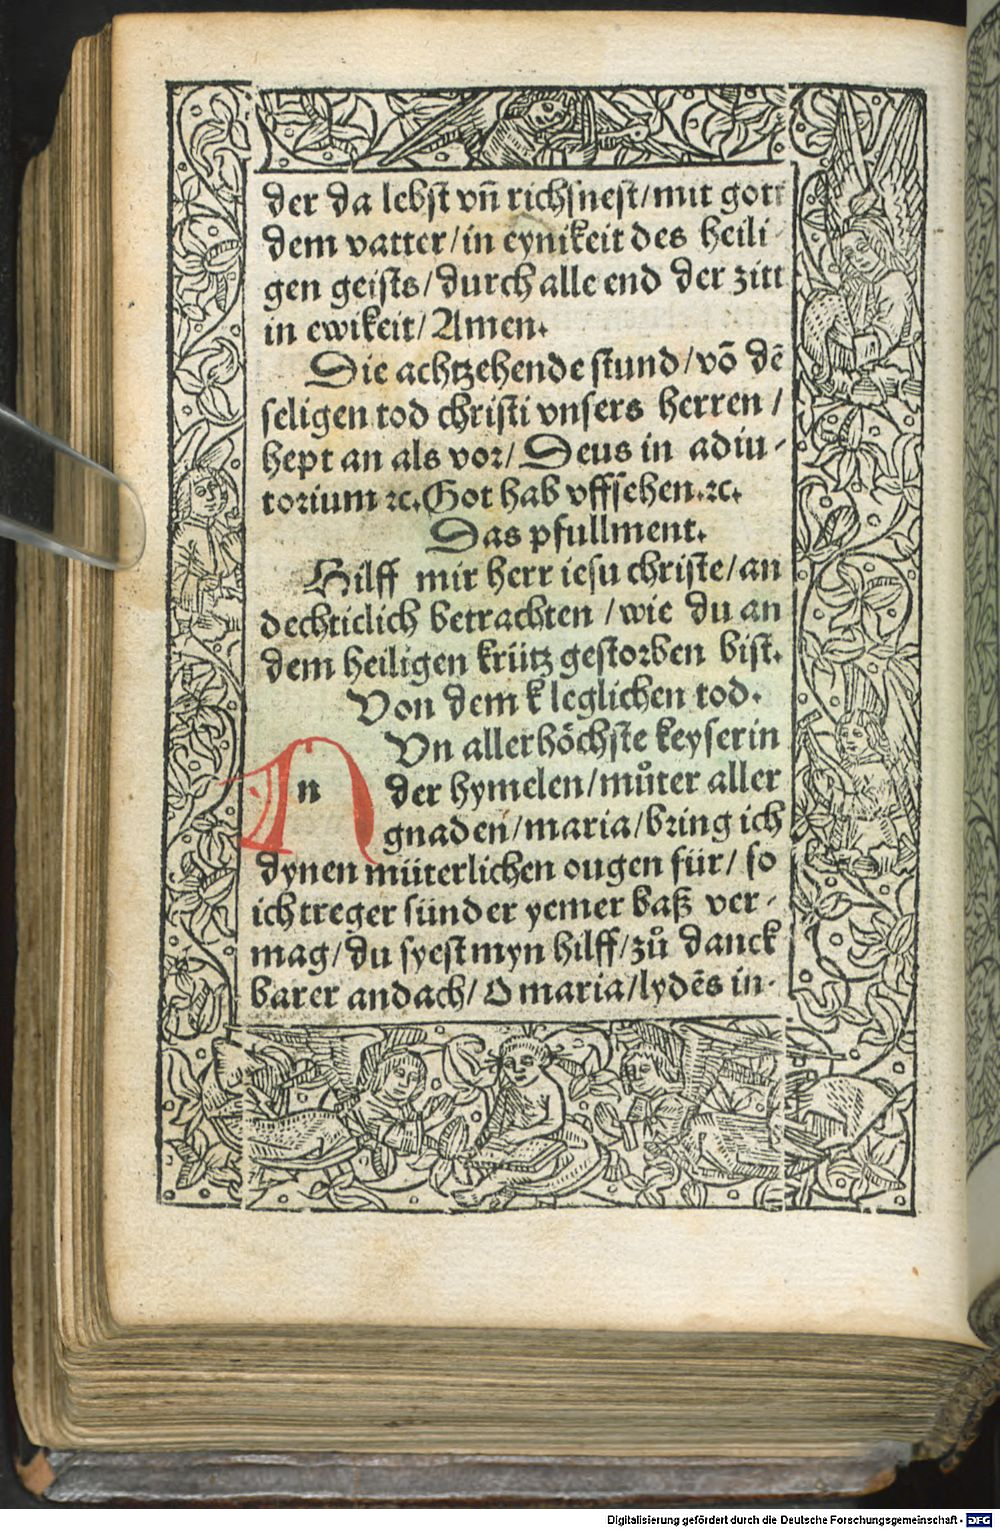 der da lebst vn̄ richsnest/mit gott
dem vatter/in eynikeit des heili-
gen geists/durch alle end der zitt
in ewikeit/Amen.
Die achtzehende stund/vō dē
seligen tod christi vnsers herren/
hept an als vor/Deus in adiu-
torium ꝛc. Got hab vffsehen.ꝛc.
Das pfullment.
Hilff mir herr iesu christe/an
dechticlich betrachten/wie du an
dem heiligen krütz gestorben bist.
Von dem kleglichen tod.
N Vn allerhöchste keyserin
n der hymelen/můter aller
gnaden/maria/bring ich
dynen müterlichen ougen für/so
ich treger sünder yemer baß ver-
mag/du syest myn hilff/zů danck
barer andach/O maria/lydēs in-
Digitalisierung gefördert durch die Deutsche Forschungsgemeinschaft - DFG